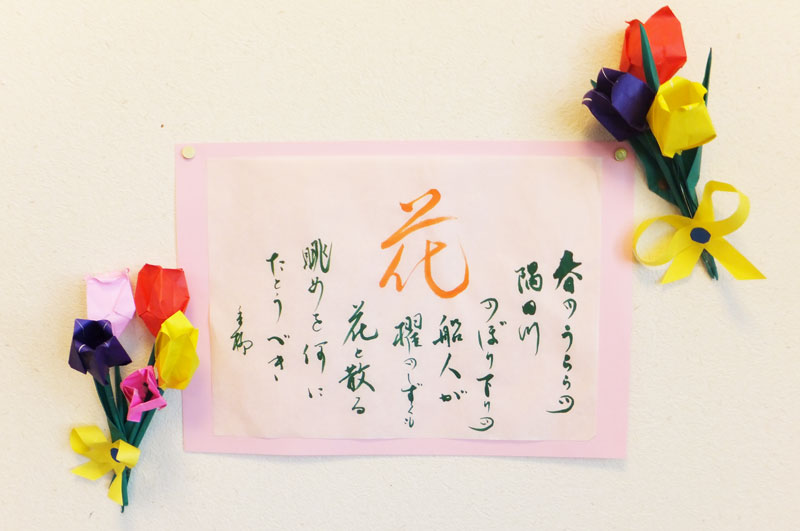 花
春のうららの
隅田川
のぼり下りの
船人が
櫂のしずくも
花と散る
眺めを何に
たとうべき